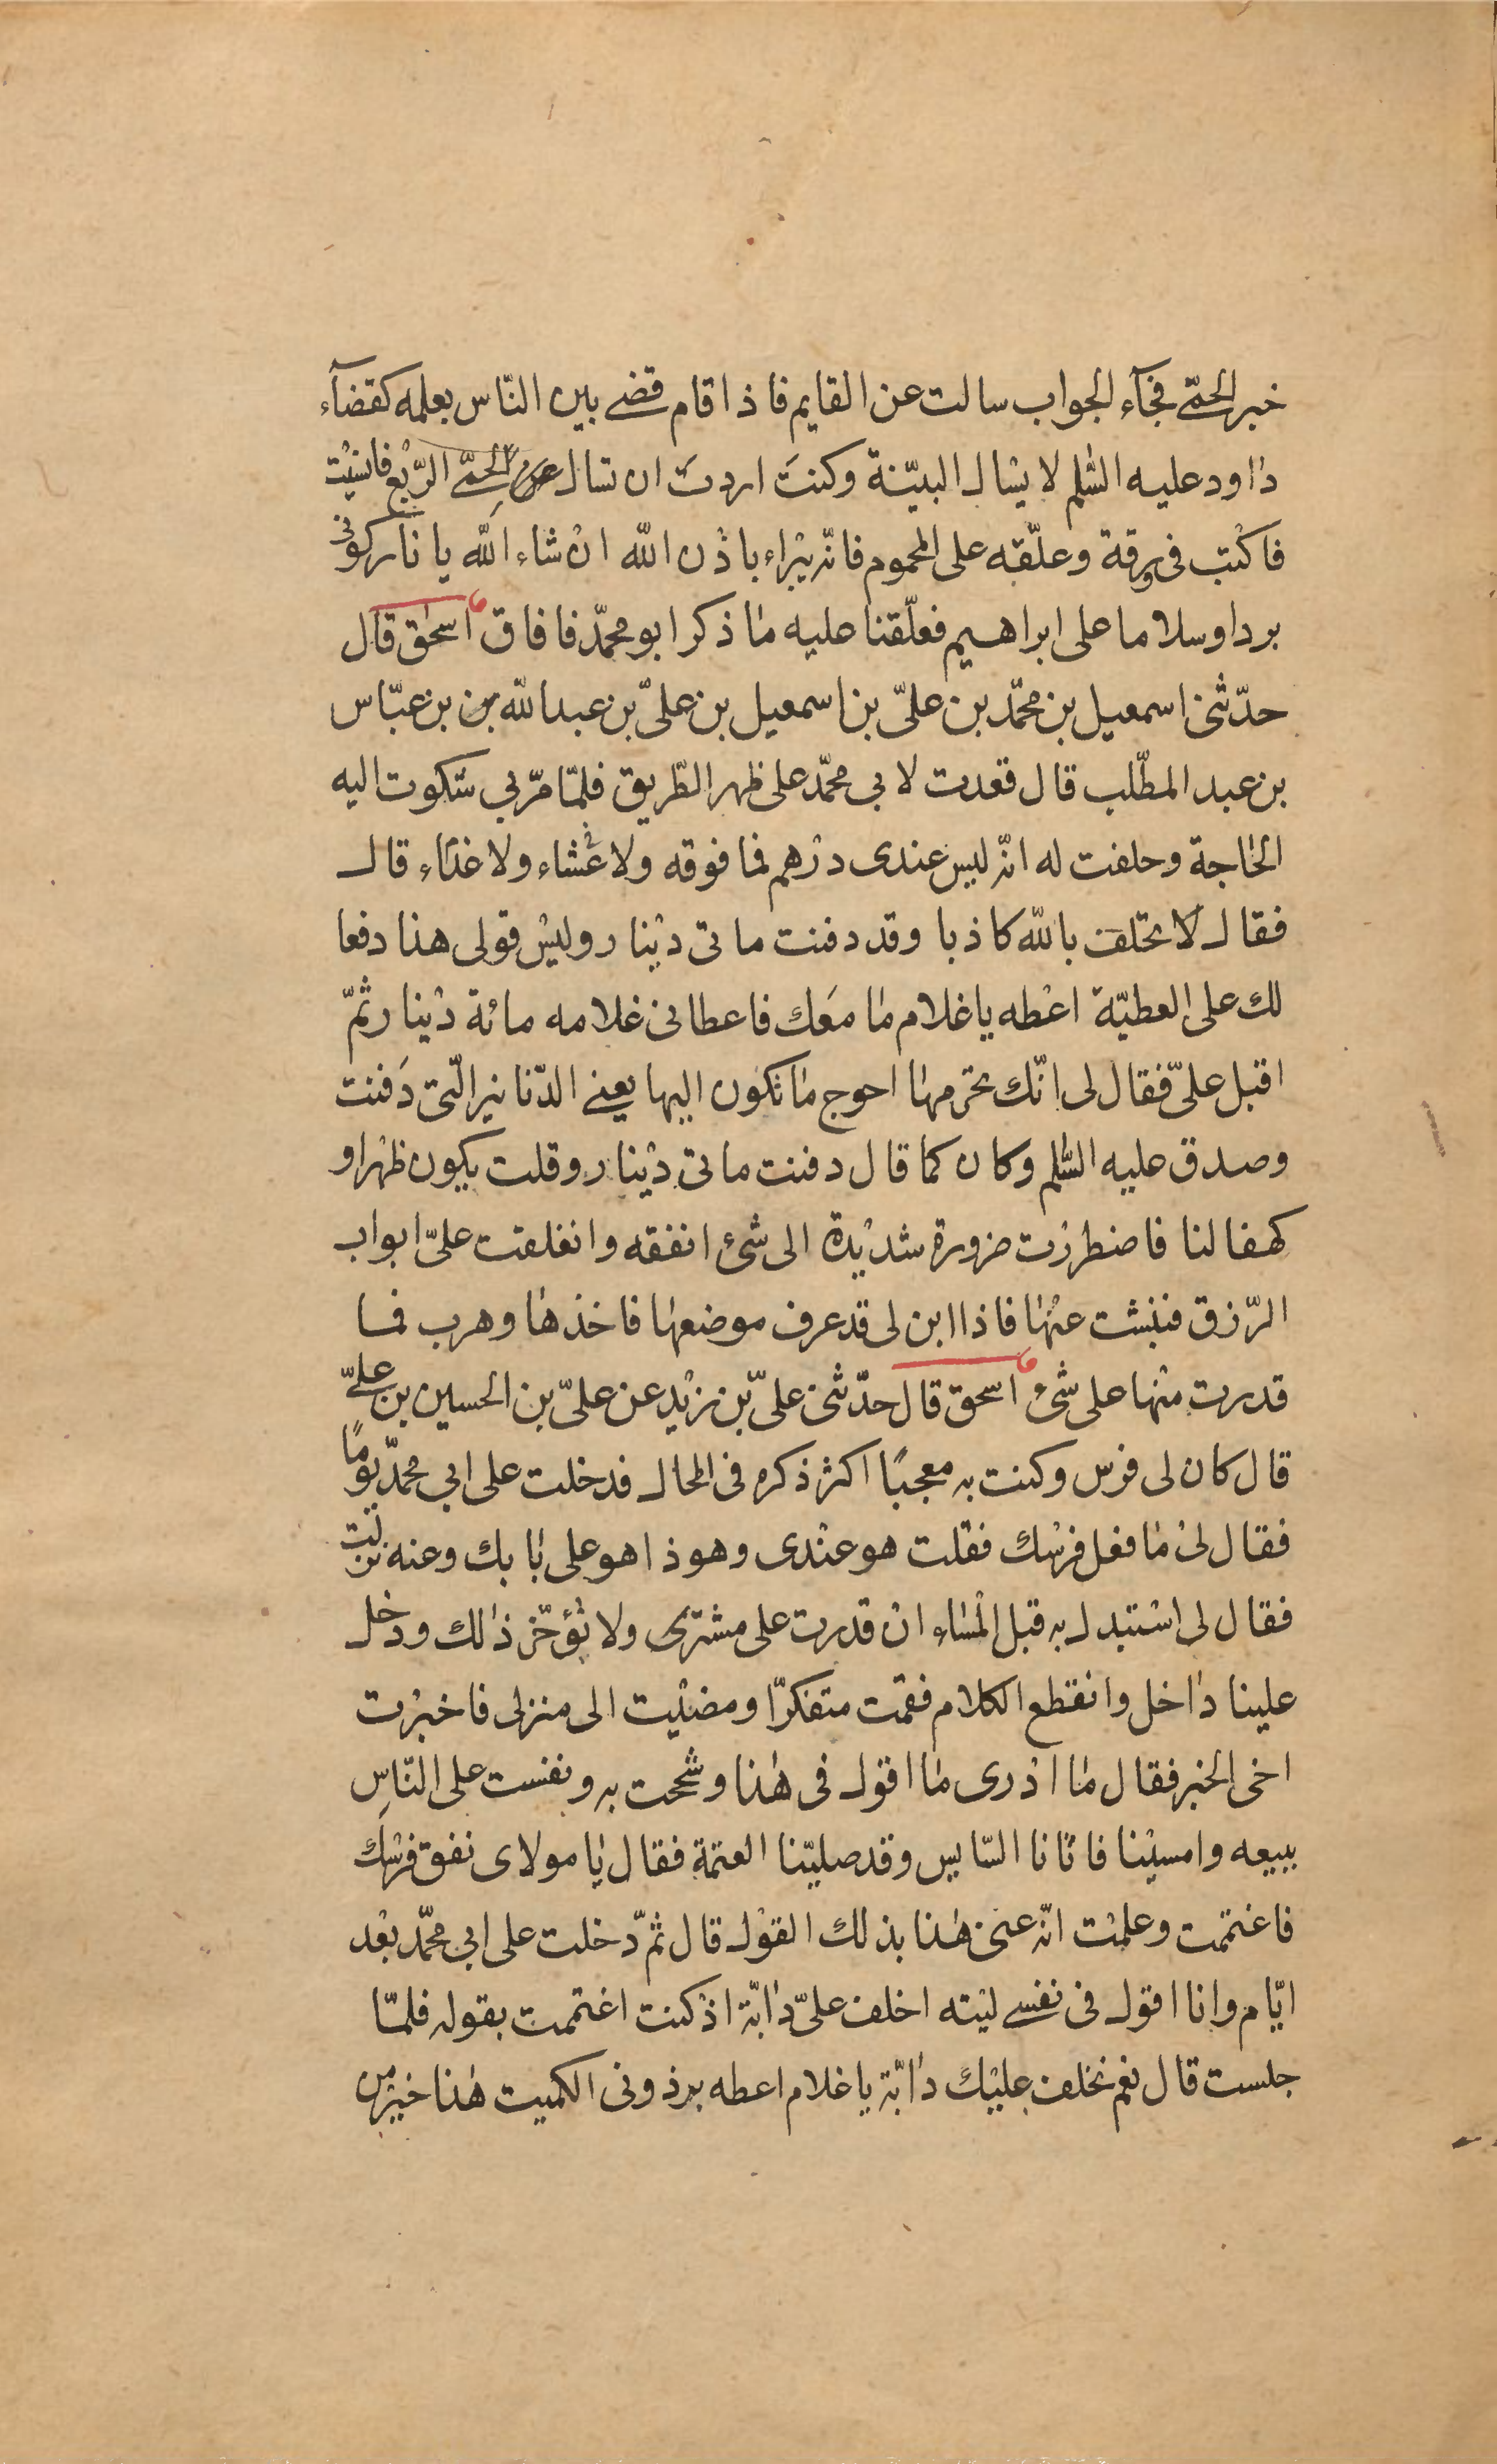 خبر الحمّى فجآء الجواب سالت عن القايم فاذا قام قضى بين النّاس بعلمه كقضآء
داود عليه السّلم لا يسال البيّنة وكنتَ اردتَ ان تسال عن الحمّى الرّبع فانسيْت
فاكتب فى ورقة وعلّقه على المحموم فانّه يبْراء باذْن اللّه انْ شاء اللّه يا نار كونى
بردا وسلاما على ابراهيم فعلّقنا عليه ما ذكر ابو محمّد فافاق اسحٰق قال
حدّثنى اسمعيل بن محمّد بن علىّ بن اسمعيل بن علىّ بن عبد اللّه بن بن عبّاس
بن عبد المطّلب قال قعدت لابي محمّد على ظهر الطّريق فلمّا مرّ بي شكوت اليه
الحاجة وحلفت له انّه ليس عندى درْهم فما فوقه ولا عشاء ولا غداء قال
فقال لا تحلف باللّه كاذبا وقد دفنت مائتى ديْنار وليْس قولى هذا دفعا
لك على العطيّة اعْطه يا غلام ما معَك فاعطانى غلامه مائة ديْنار ثمّ
اقبل علىّ فقال لى انّك تحرمها احوج ما تكون اليها يعنى الدّنانير الّتى دَفنت
وصدق عليه السّلم وكان كما قال دفنت مائتى ديْنار وقلت يكون ظهْرا و
كهفا لنا فاضطررْت ضرورة شديْدة الى شئ انفقه وانغلقت علىّ ابواب
الرّزق فنبشت عنْها فاذا ابن لى قد عرف موضعها فاخذها وهرب فما
قدرت منْها على شئ اسحق قال حدّثنى علىّ بن زيْد عن علىّ بن الحسين بن علىّ
قال كان لى فرس وكنت به معجبًا اكثر ذكره فى المحال فدخلت على ابي محمّد يومًا
فقال لىْ ما فعل فرسْك فقلت هو عنْدى وهو ذا هو على بابك وعنه نزلت
فقال لى اسْتبدل به قبل الْمساء انْ قدرت على مشترى ولا تؤخّر ذالك ودخل
علينا داخل وانقطع الكلام فقمت متفكّرا ومضيْت الى منزلى فاخبرْت
اخى الخبر فقال ما ادْرى ما اقول فى هٰذا وشححت به ونفست على النّاسِ
ببيعه وامسيْنا فاتانا السّايس وقد صليّنا العتمة فقال يا مولاى نفق فرسْك
فاغتممت وعلمْت انّه عنى هٰذا بذلك القوْل قال ثمّ دخلت على ابي محمّد بعْد
ايّام وانا اقول فى نفسى ليْته اخلف علىّ دابّة اذْ كنت اغتممت بقوله فلمّا
جلست قال نعم نخلف عليْك دابّة يا غلام اعطه برذونى الكميت هٰذا خيْر من